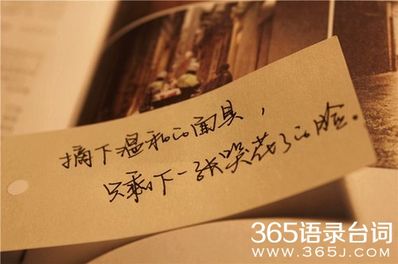 摘下温和的面具，
只剩下一张哭花了的脸。
365语录台词
www.365J.COM